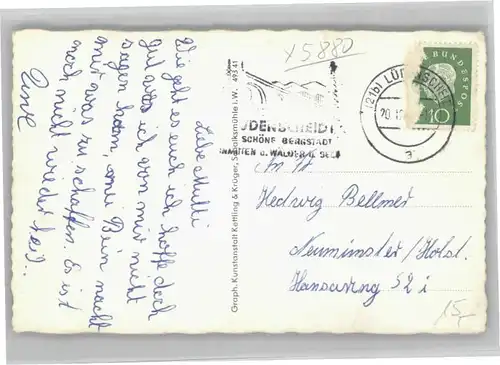 Liebe Mutti
Wie geht es euch ich hoffe doch
gut was ich von mir nicht
sagen kann, mein Bein macht
mir was zu schaffen. Es ist
noch nicht wieder heil.
x5880
Graph. Kunstanstalt Kettling & Krüger, Schalksmühle i. W. 493 41
ÜDENSCHEID
SCHÖNE BERGSTADT
INMITTEN v. WÄLDER U. SEEN
(21b) LÜDENSCHEID
20.
a
DEUTSCHE BUNDESPOST
10
An
Hedwig Bellmer
Neumünster / Holst.
Hansaring 52 i
15,-